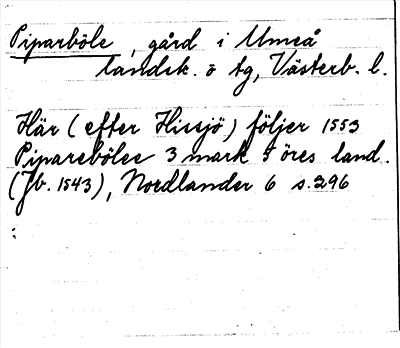 Piparböle, gård i Umeå
landsk. o tg, Västerb. l.
Här (efter Hissjö) följer 1553
Piparebölee 3 mark 5 öres land.
(Jb. 1543), Nordlander 6 s. 296